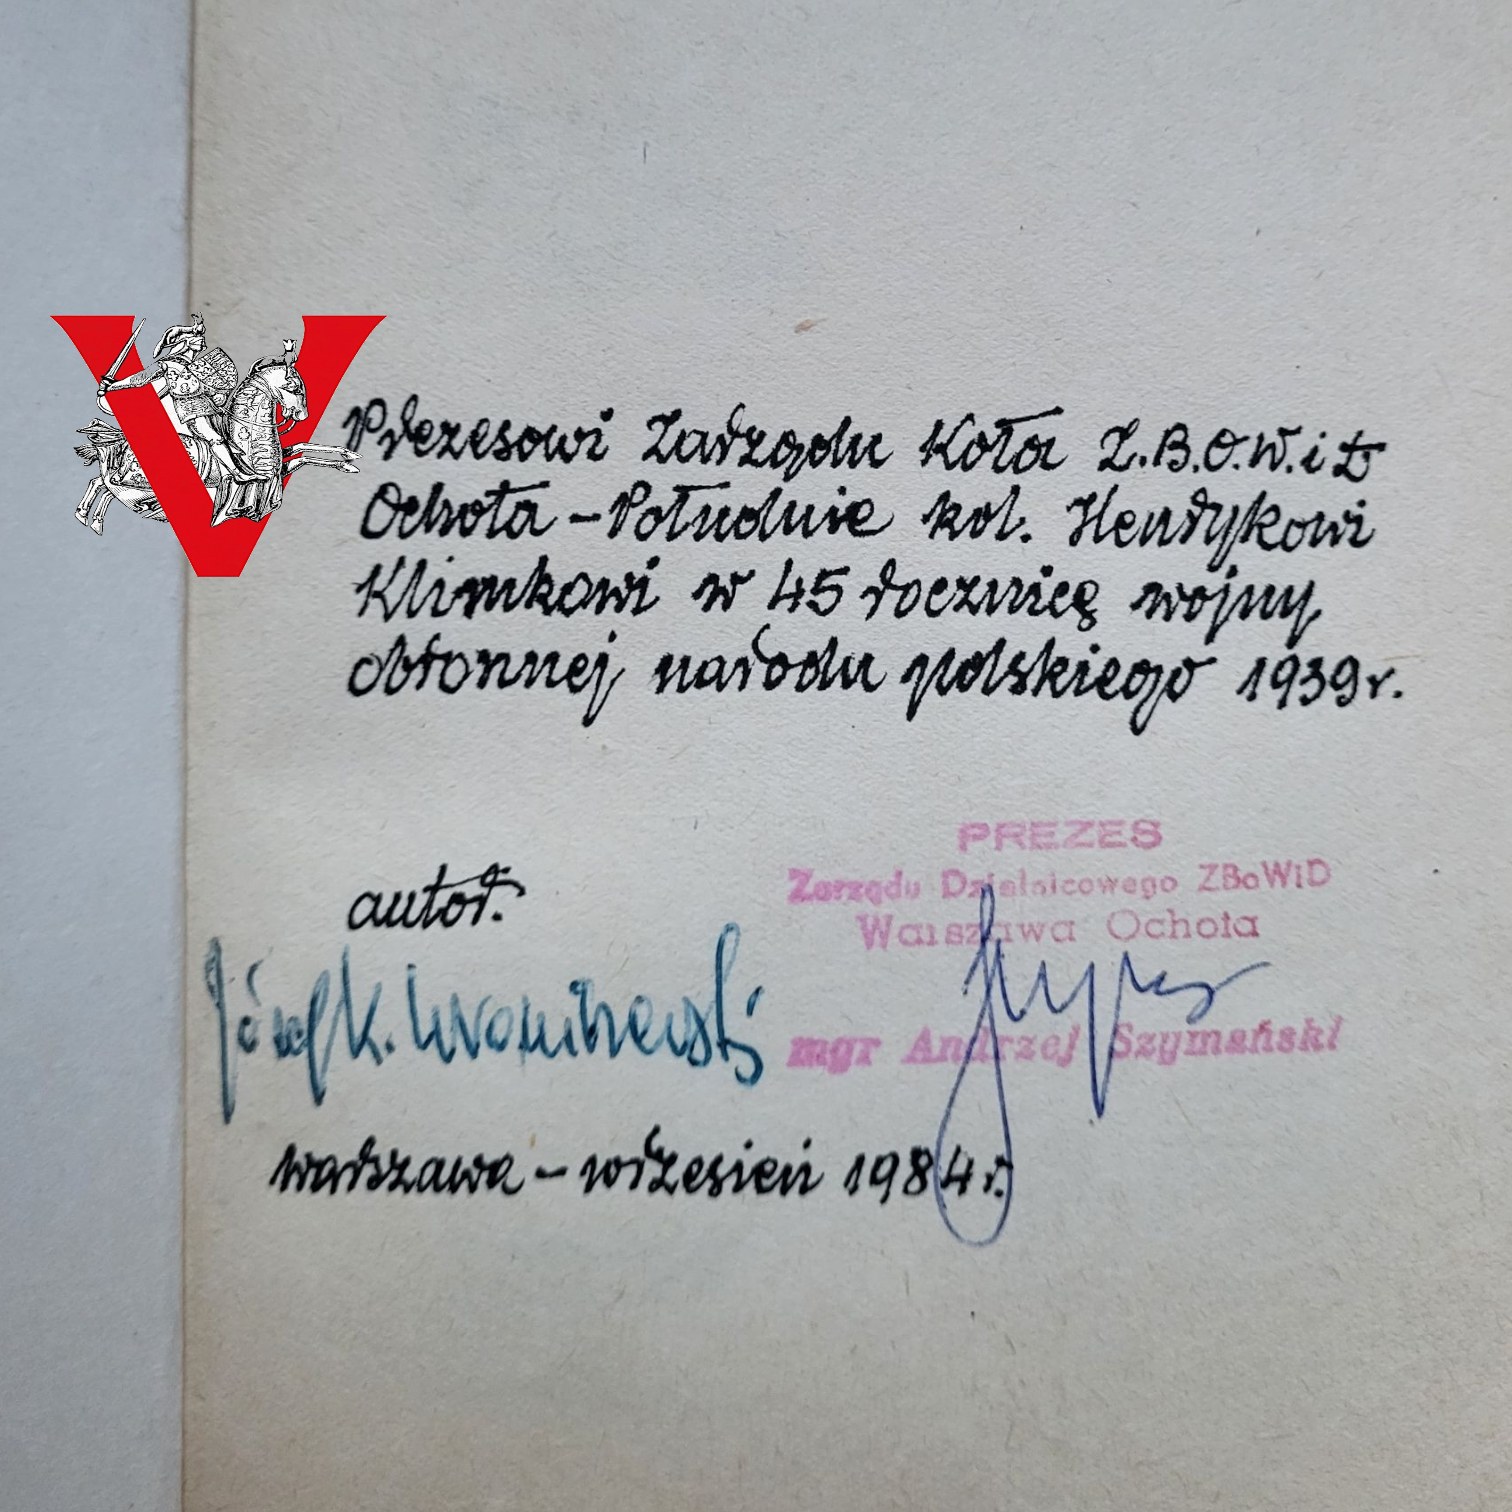 Prezesowi Zarządu Koła Z.B.O.W.i D
Ochota - Południe kol. Henrykowi
Klimkowi w 45 rocznicę wojny
obronnej narodu polskiego 1939 r.
autor.
PREZES
Zarządu Dzielnicowego ZBoWiD
Warszawa Ochota
Józef K. Wroniszewski
mgr Andrzej Szymański
Warszawa - wrzesień 1984 r.
V